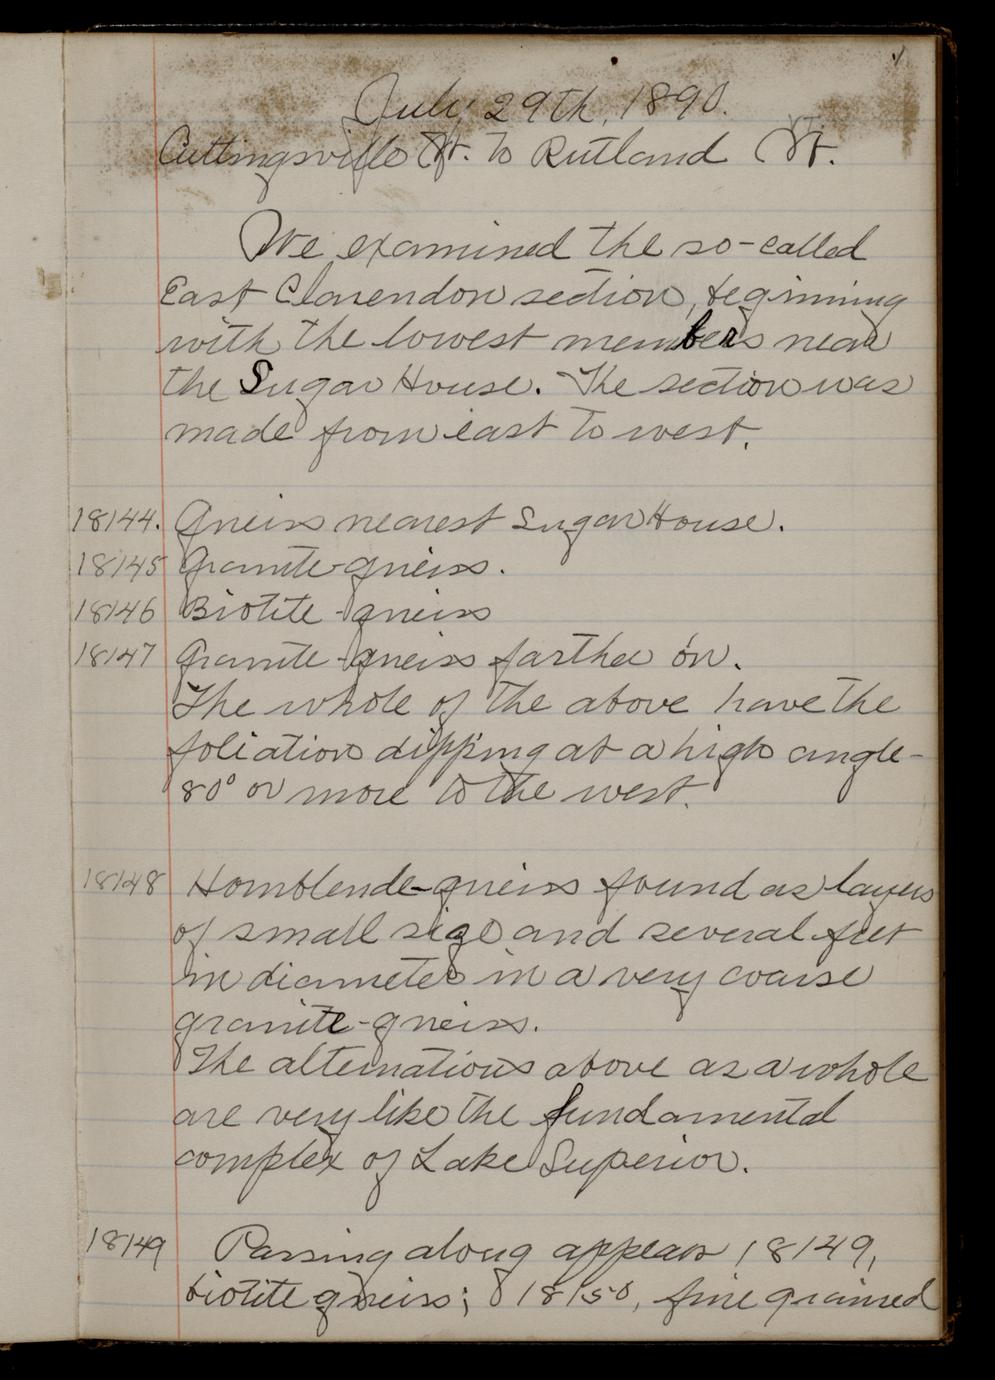 July 29th, 1890.
Cuttingsville Vt. to Rutland Vt.
We examined the so-called
East Clarendon section, beginning
with the lowest members near
the Sugar House. The section was
made from east to west.
18144. Gneiss nearest Sugar House.
18145 Granite-gneiss.
18146 Biotite-gneiss
18147 Granite-gneiss farther on.
The whole of the above have the
foliation dipping at a high angle-
80° or more to the west.
18148 Hornblende-gneiss found as layers
of small size and several feet
in diameter in a very coarse
granite-gneiss.
The alternations above as a whole
are very like the fundamental
complex of Lake Superior.
18149 Passing along appears 18149,
biotite gneiss; 18150, fine grained